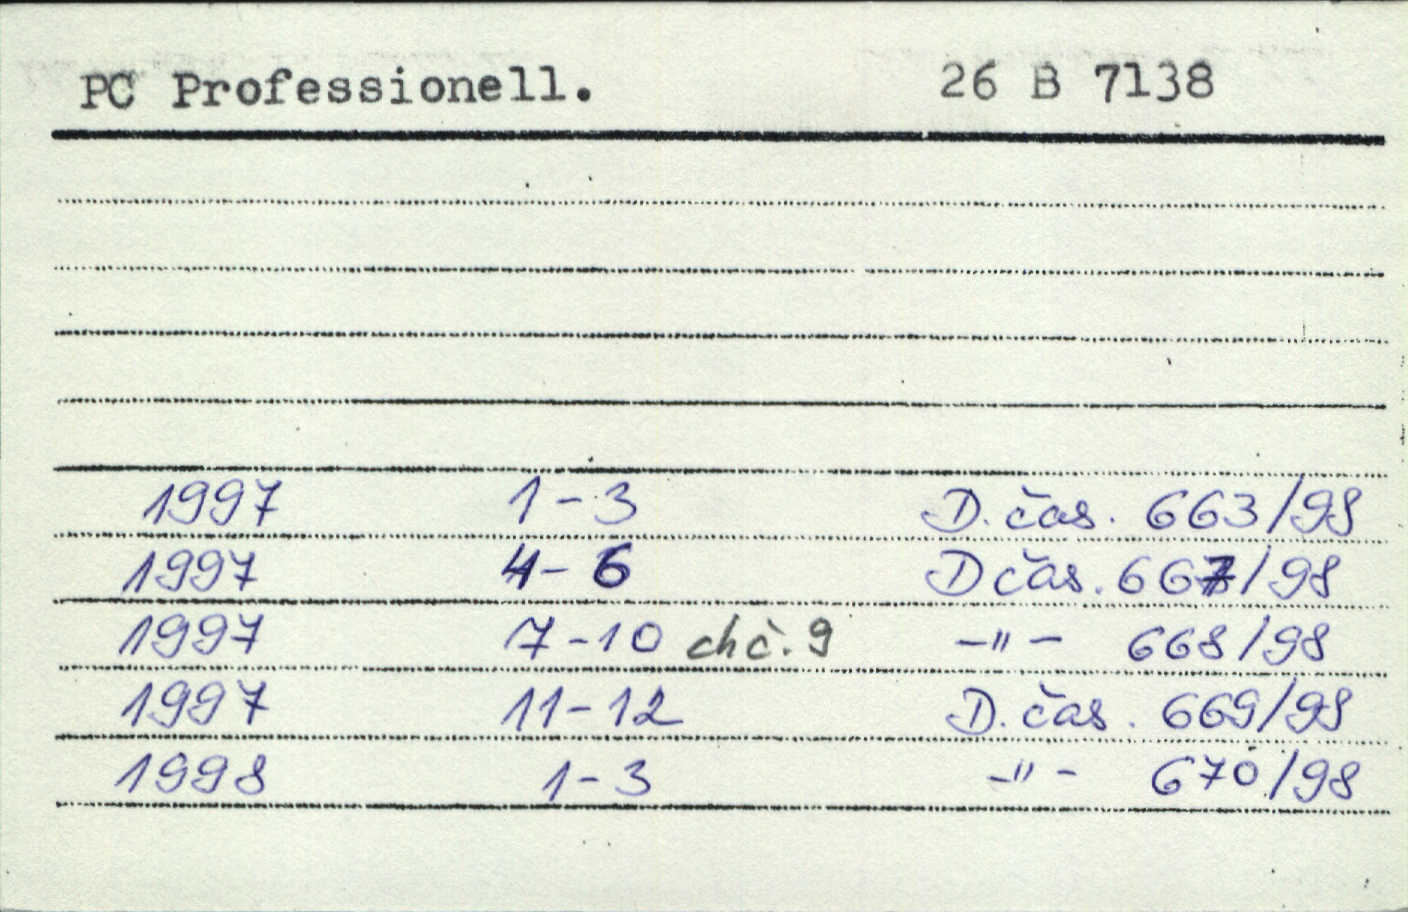 PC Professionell. 26 B 7138
1997 1-3 D. čas. 663/98
1997 4-6 D čas. 667/98
1997 7-10 chč. 9 -"- 668/98
1997 11-12 D. čas. 669/98
1998 1-3 -"- 670/98